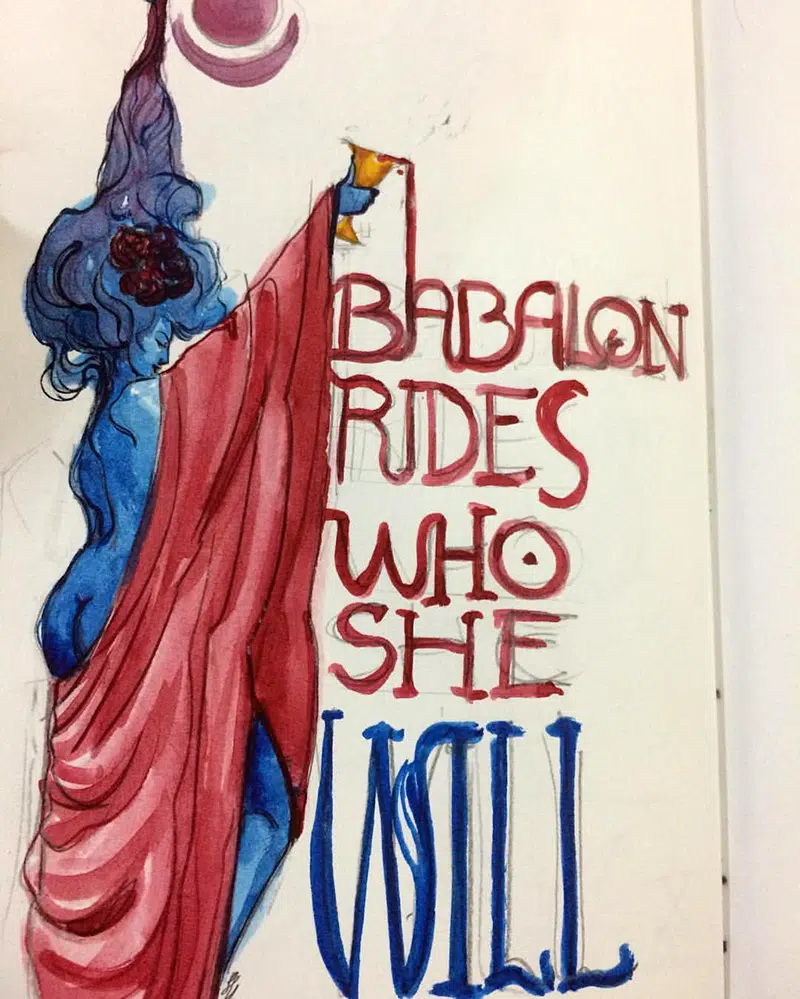 BABALON
RIDES
WHO
SHE
WILL